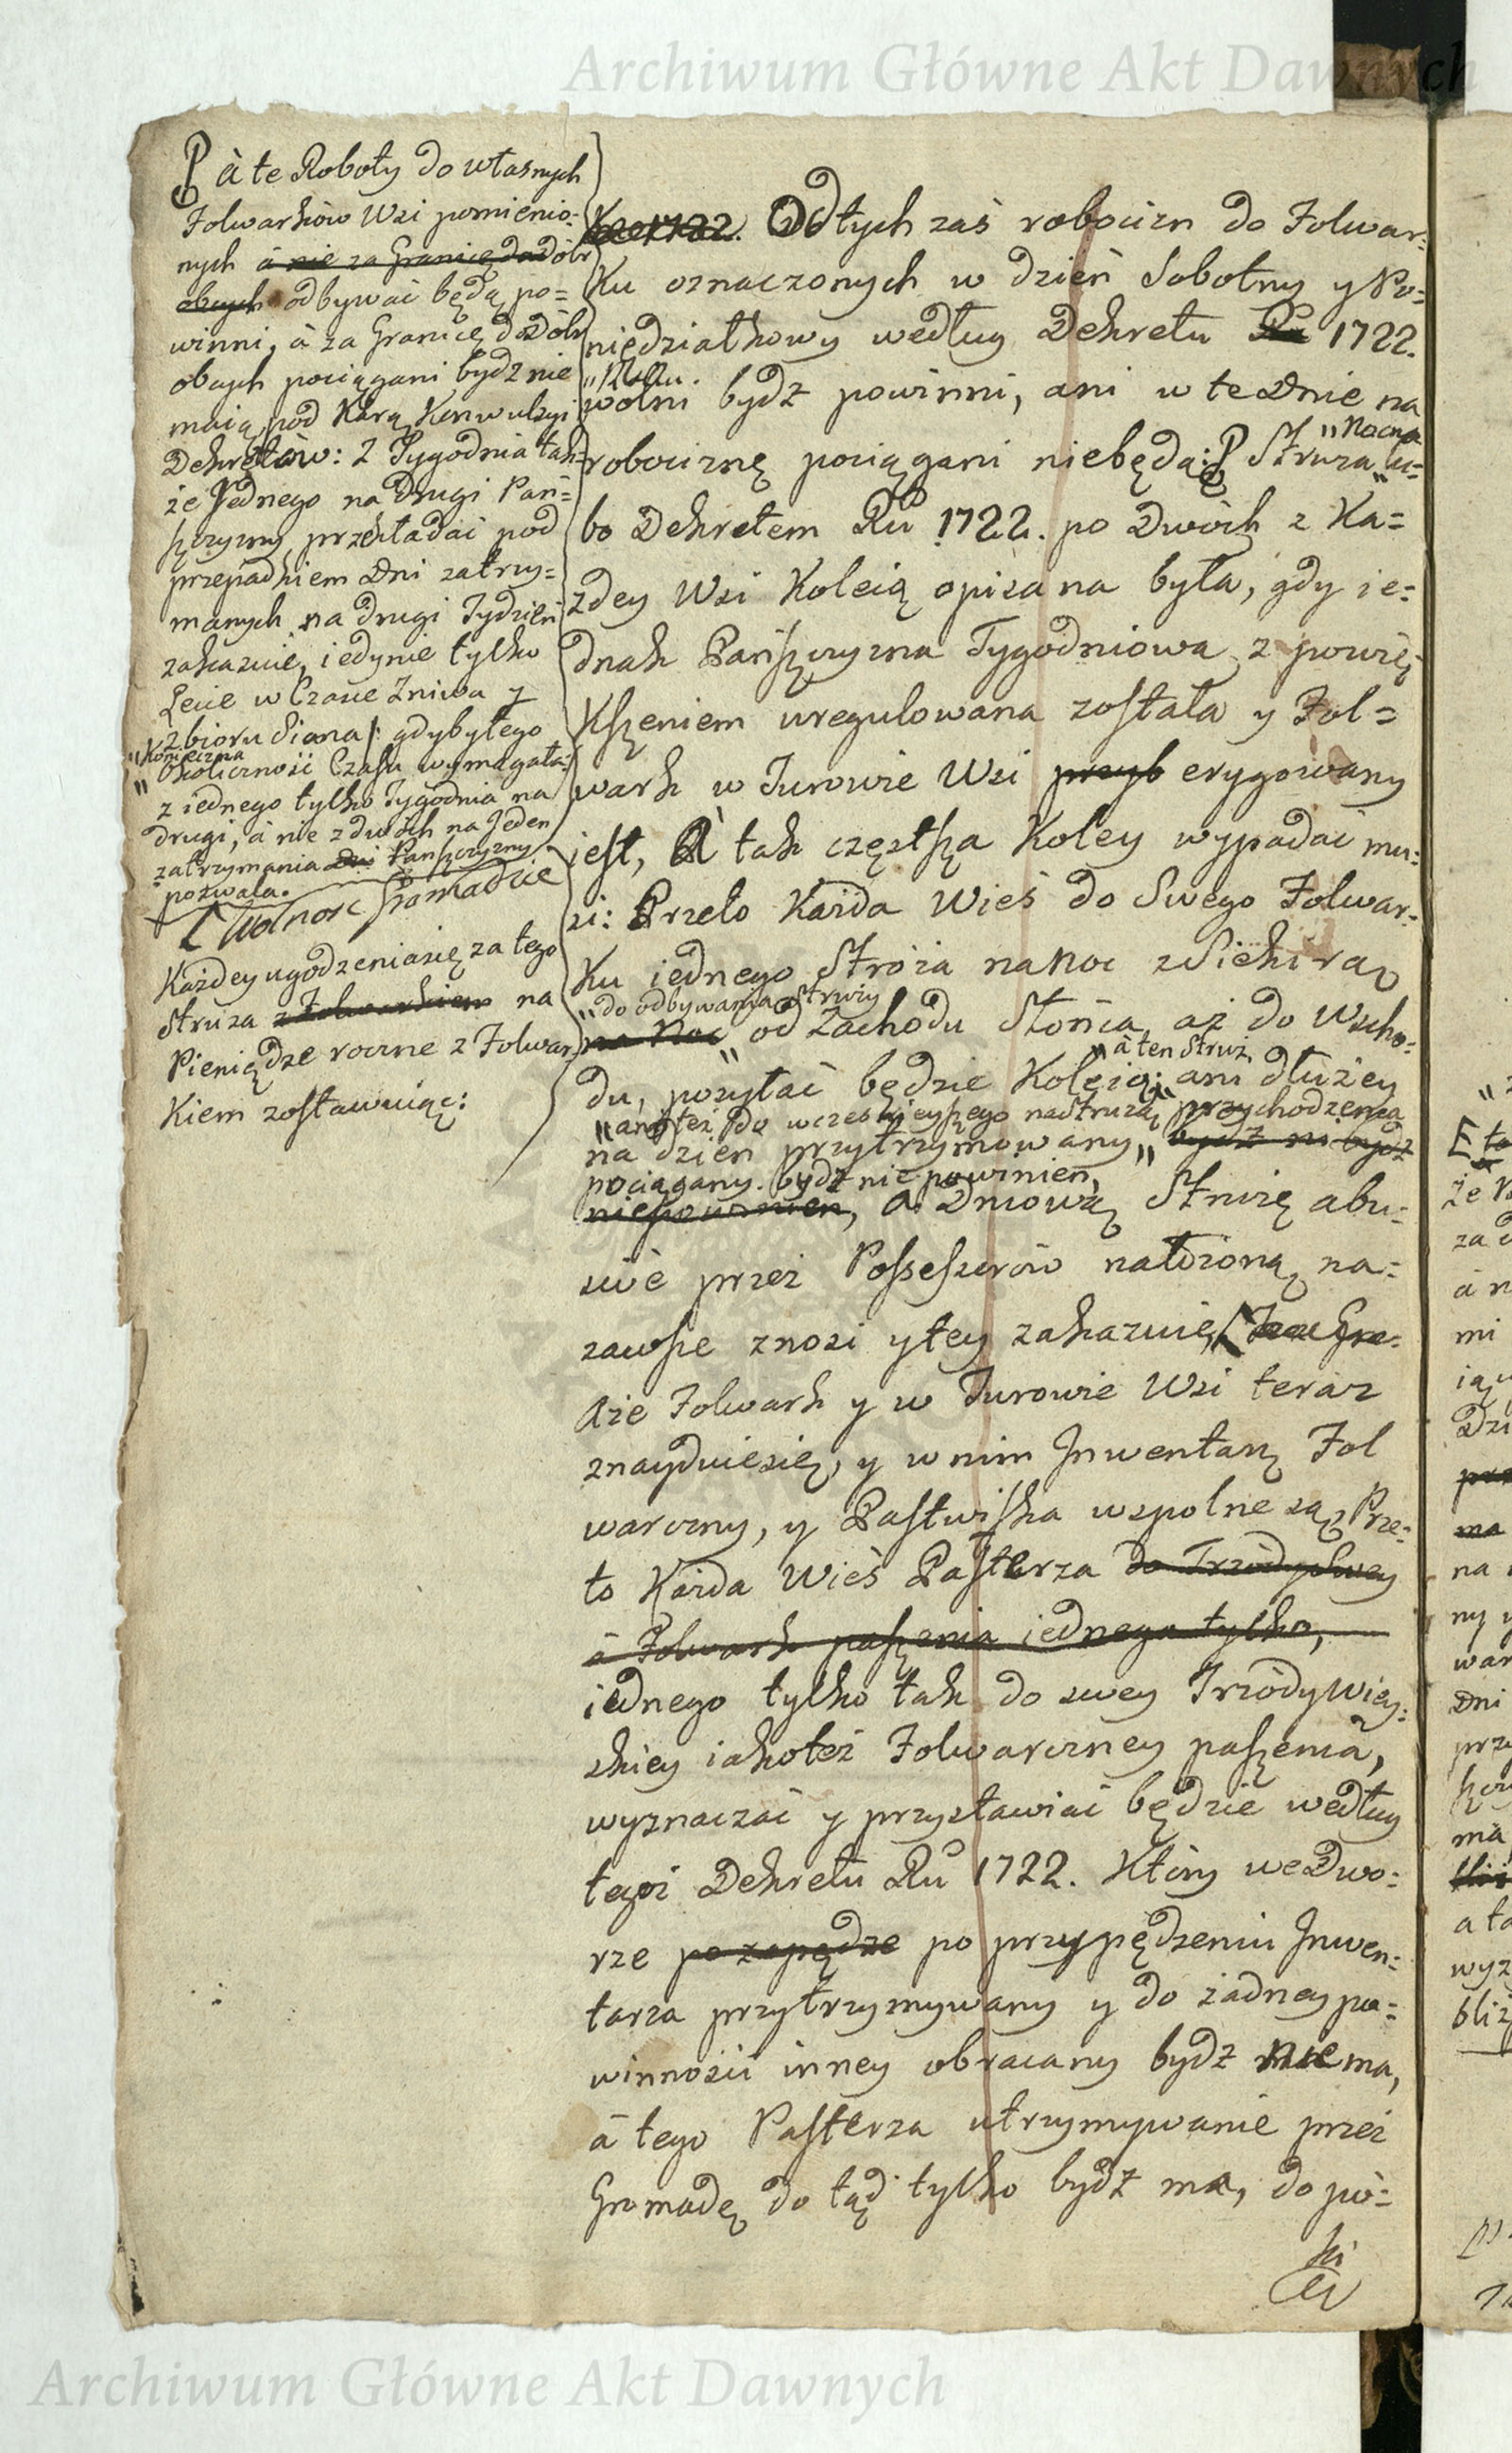 Archiwum Główne Akt Dawnych
à te Roboty do własnych
Folwarków Wsi pomienio:
nych á nie za Granicę do dóbr
obcych odbywać będą po=
winni, à za Granicę do Dóbr
obcych pociągani bydz nie
maią pod Karą Konwulsyi
Dekretów: Z Tygodnia tak=
że Jednego na drugi Pań=
szczyzny przekładać pod
przepadkiem Dni zatrzy=
manych na drugi Tydzień
zakazuie, iedynie tylko
Lecie w Czasie Żniwa y
zbioru Siana /: gdyby tego
"konieczna
" okoliczność Czasu wymagała:/
z iednego tylko Tygodnia na
drugi, à nie z dwóch na Jeden
zatrzymania Dni Pańszczyzny
pozwala.
Wolność Gromadzie
Każdey ugodzenia się za tego
Struża z Folwarkiem na
Pieniądze roczne z Folwar
Kiem zostawuiąc:
1722. Od tych zaś robocizn do Folwar:
Ku oznaczonych w dzień Sobotny y Po=
niedziałkowy według Dekretu Ru 1722.
"Roku.
wolni bydz powinni, ani w te Dnie na
"Nocna
robociznę pociągani niebędą: Struża lu=
bo Dekretem Ru 1722. po Dwóch z Ka=
zdey Wsi Koleią opisana była, gdy ie=
dnak Pańszczyzna Tygodniowa z powię
Kszeniem uregulowana została y Fol=
wark w Turowie Wsi przyb erygowany
iest, A tak częstsza Koley wypadać mu:
si: Przeto Każda Wieś do Swego Folwar:
Ku iednego Stróża na Noc z Siekirą
"do odbywania Struży
na Noc od Zachodu Słońca, aż do Wscho:
"à ten Struż
du, posyłać będzie Koleią: ani dłużey
"ani też do wcześnieyszego na Strużą przychodzenia
na dzień przytrzymowany " bydz ni bydz
pociągany. bydz nie powinien,
niepowinien, à Dniową Strużę abu:
siuè przez Possessorów nałożoną na=
zawsze znosi y tey zakazuie,
Aże Folwark y w Turowie Wsi teraz
znayduiesię, y w nim Jnwentarz Fol
warczny, y Pastwiska wspolne są, Prze:
to Każda Wieś Pasterza do Trzódy Swey
á Folwark paszenia iednego tylko,
iednego tylko tak do swey Trzódy Wiey:
skiey iakoteż Folwarczney paszenia,
wyznaczać y przystawiać będzie według
tegoż Dekretu Ru 1722. Który we Dwo:
rze po zapędze po przypędzeniu Jnwen:
tarza przytrzymywany y do żadney po=
winności inney obracany bydz nie ma,
à tego Pasterza utrzymywanie przez
Gromadę do tąd tylko bydź ma, do pó=
ki
Archiwum Główne Akt Dawnych